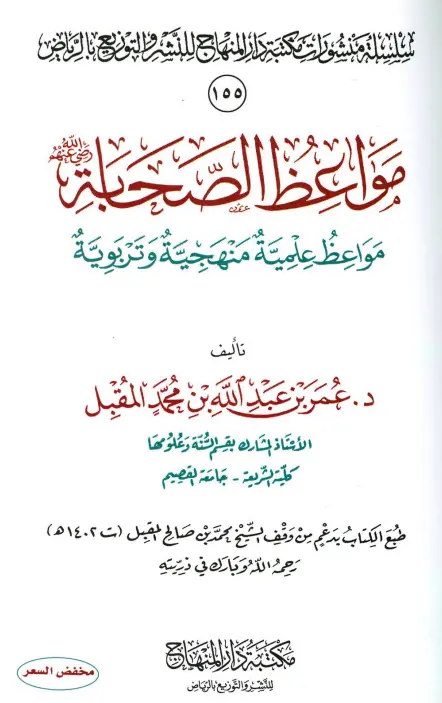 سلسلة منشورات مكتبة دار المنهاج للنشر والتوزيع بالرياض
١٥٥
مَوَاعِظُ الصَّحَابَةِ رضي الله عنهم
مَوَاعِظُ عِلْمِيَّةٌ مَنْهَجِيَّةٌ وَتَرْبَوِيَّةٌ
تأليف
د. عُمَر بْن عَبْدِ اللَّهِ بْنِ مُحَمَّدٍ المُقْبِل
الأستاذ المشارك بقسم السُّنَّة وعلومها
كلية الشريعة - جامعة القصيم
طُبعَ الكِتَابُ بِدَعْمٍ مِنْ وَقْفِ الشَّيْخِ مُحَمَّد بْن صَالِح المقبل (ت ١٤٠٢ هـ)
رَحِمَهُ اللَّهُ وَبَارَكَ فِي ذُرِّيَّتِهِ
مكتبة دار المنهاج
للنشر والتوزيع بالرياض
مخفض السعر